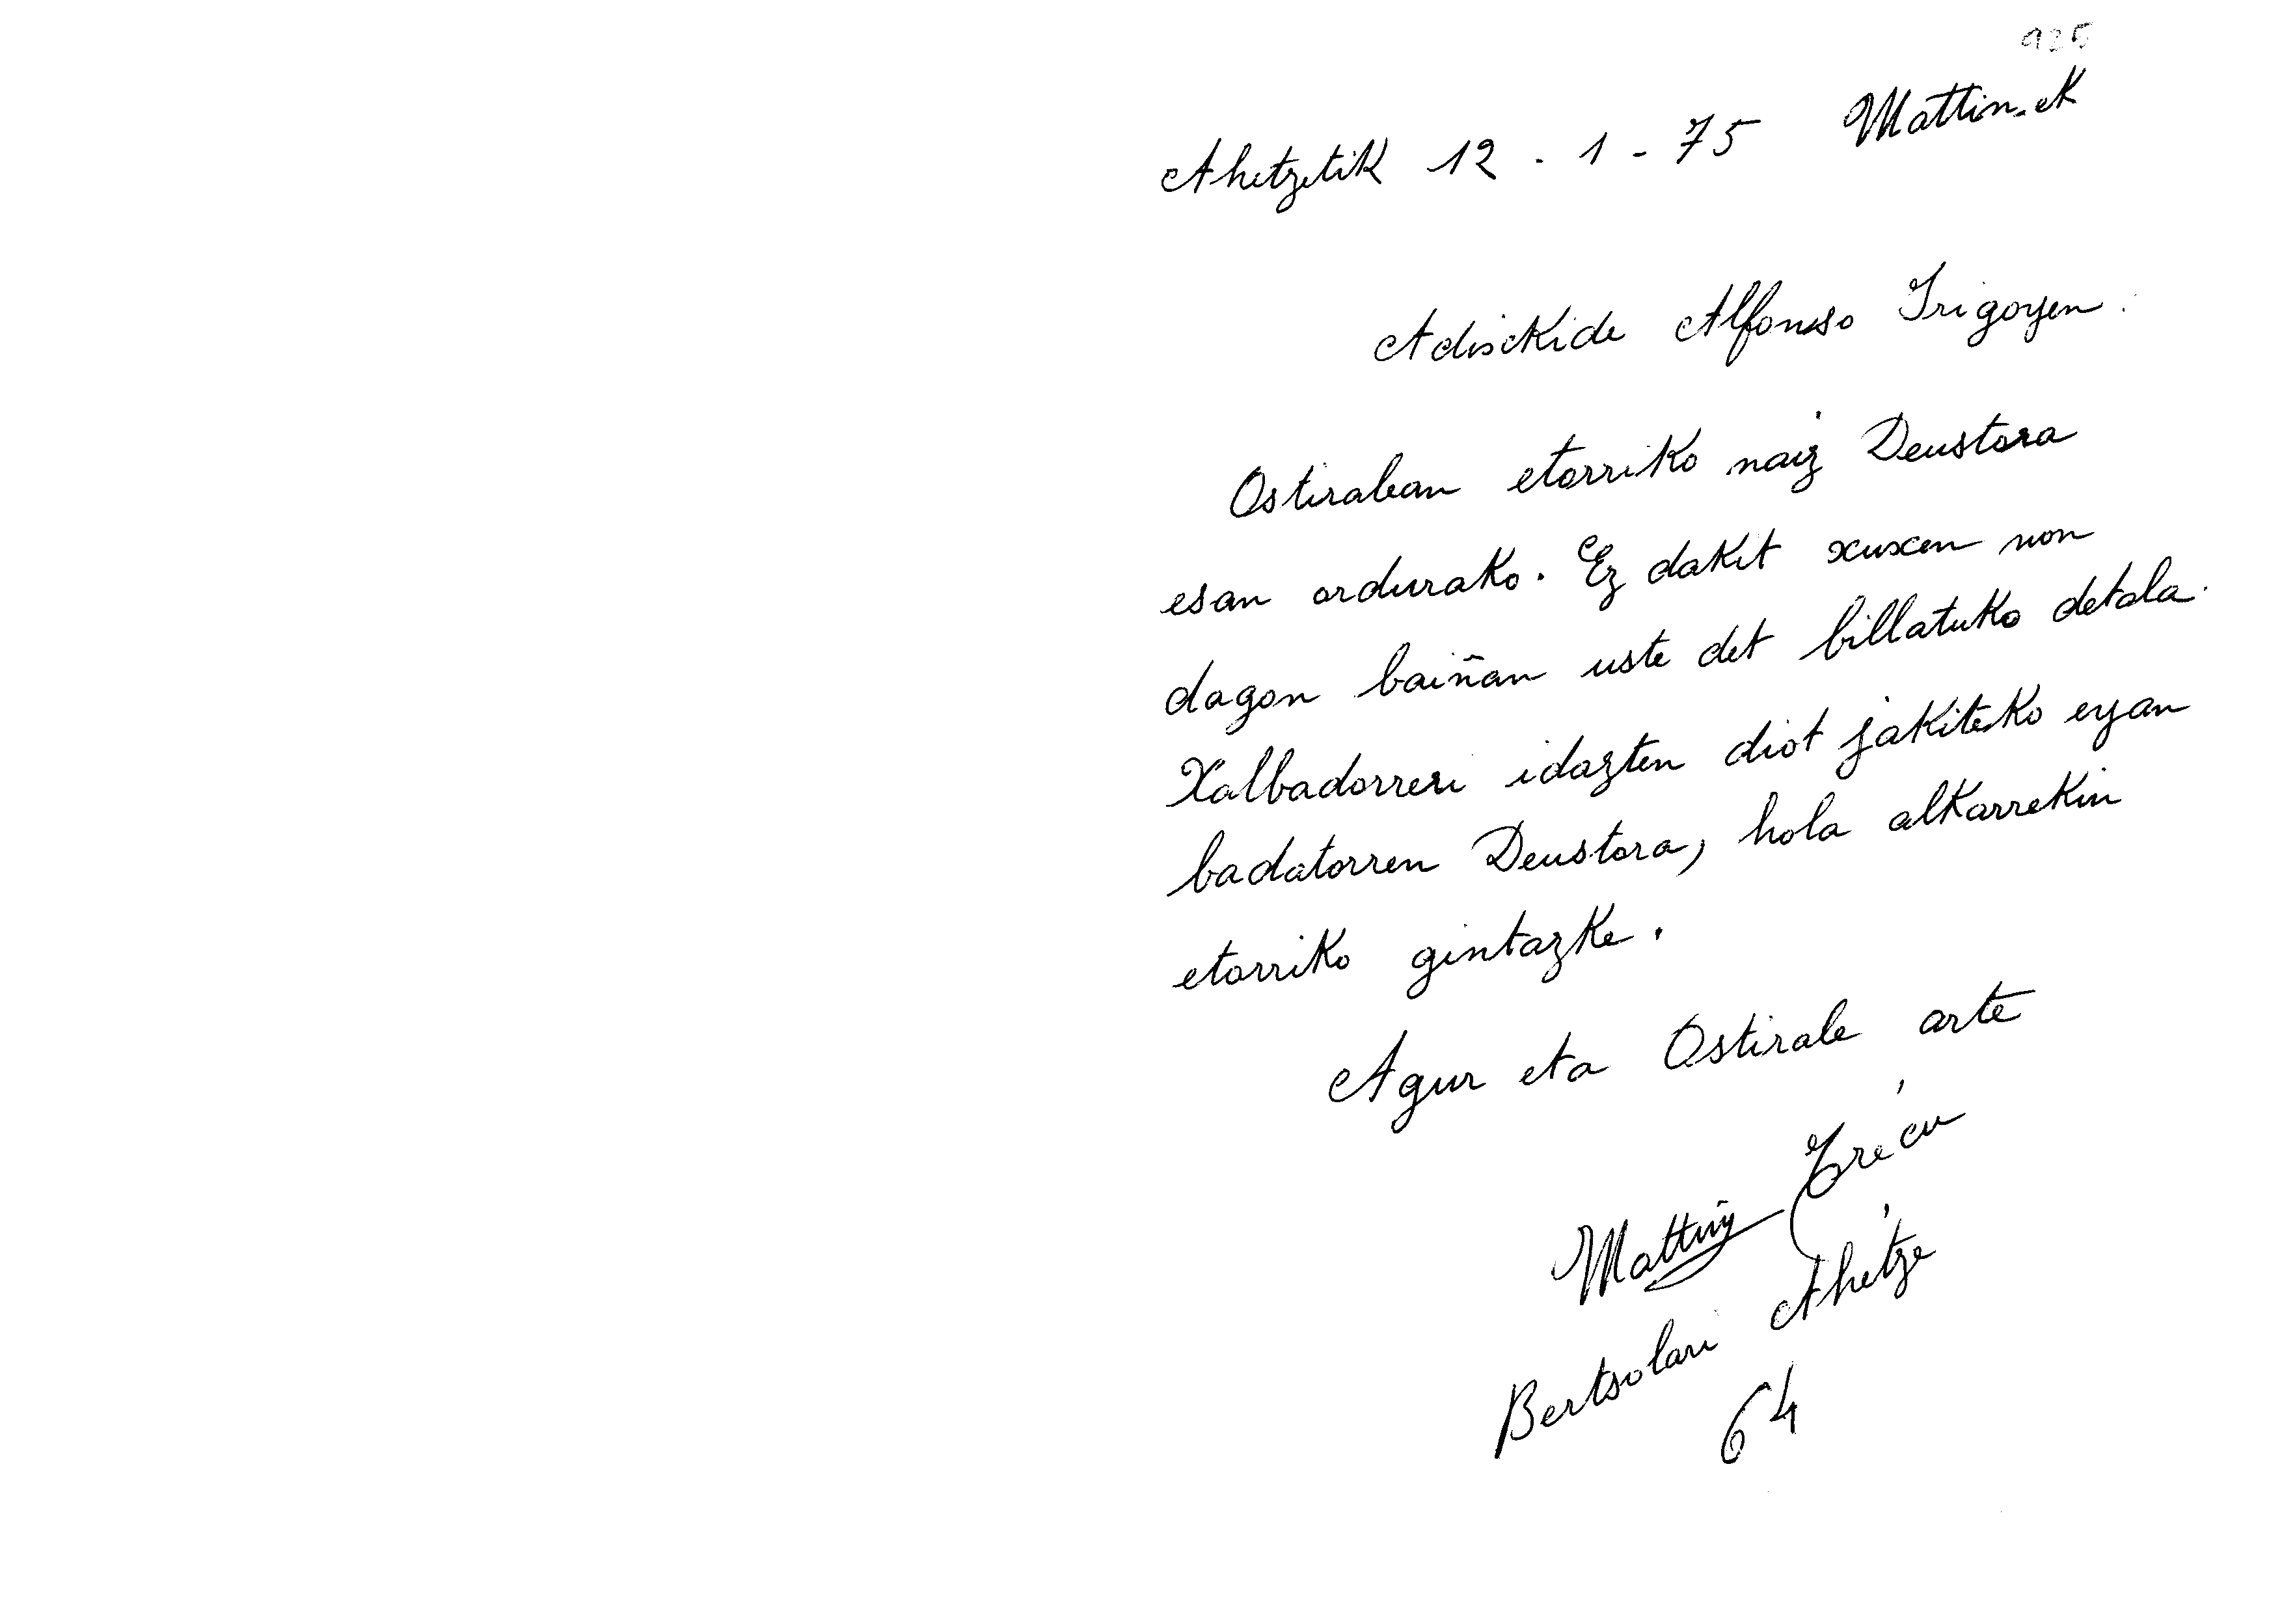 925
Ahetzetik 12 - 1 - 75 Mattin-ek
Adickide Alfonso Irigoyen.
Ostiralean etorriko naiz Deustora
esan ordurako. Ez dakit xuxen non
dagon baiñan uste det billatuko detala.
Xalbadorreri idazten diot jakiteko eyan
badatorren Deustora, hola alkarrekin
etorriko gintazke.
Agur eta Ostirale arte
Mattin Trécu
Bertsolari Ahetze
64